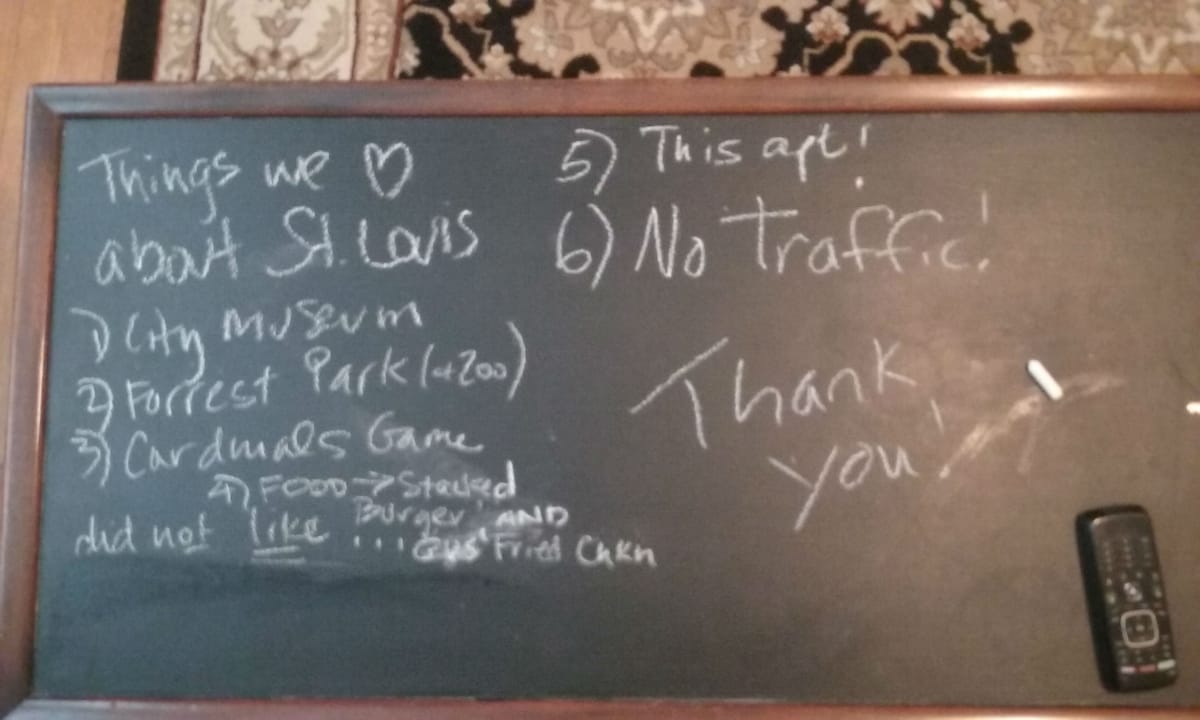 Things we ♡
about St. Louis
1) City Museum
2) Forrest Park (+Zoo)
3) Cardinals Game
4) FOOD → Stacked
Burger AND
Gus' Fried Chkn
did not like ...
5) This apt!
6) No Traffic!
Thank
you!